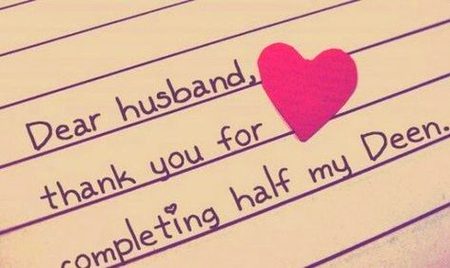 Dear husband,
thank you for
completing half my Deen.